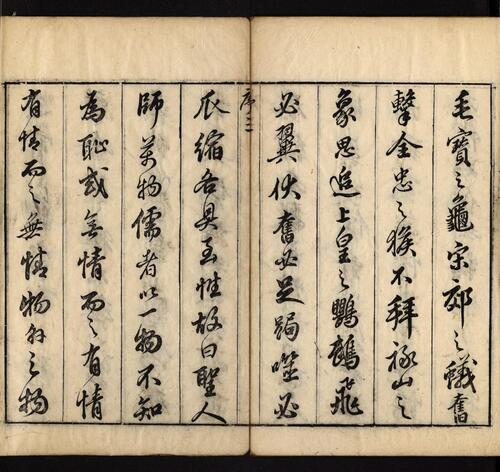 毛寶之龜宋郊之蟻奮
擊金忠之猴不拜祿山之
象思追上皇之鸚鵡飛
必翼伏奮必足踢噬必
爪縮各具至性故曰聖人
師萬物儒者以一物不知
為恥或無情而之有情
有情而之無情物外之物
序二